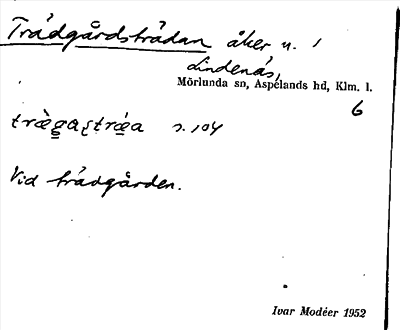 Trädgårdsträdan åker n. 1
Lindenäs,
Mörlunda sn, Aspelands hd, Klm. l.
6
s. 104
Vid trädgården.
Ivar Modéer 1952